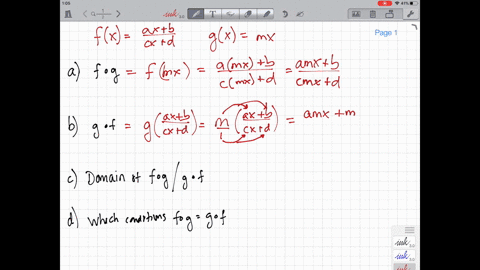 1:00
Page 1
f(x) = \frac{ax+b}{cx+d} g(x) = mx
a) f∘g = f(mx) = \frac{a(mx)+b}{c(mx)+d} = \frac{amx+b}{cmx+d}
b) g∘f = g(\frac{ax+b}{cx+d}) = \frac{m}{1}(\frac{ax+b}{cx+d}) = amx+m
c) Domain of f∘g / g∘f
d) Which conditions f∘g = g∘f